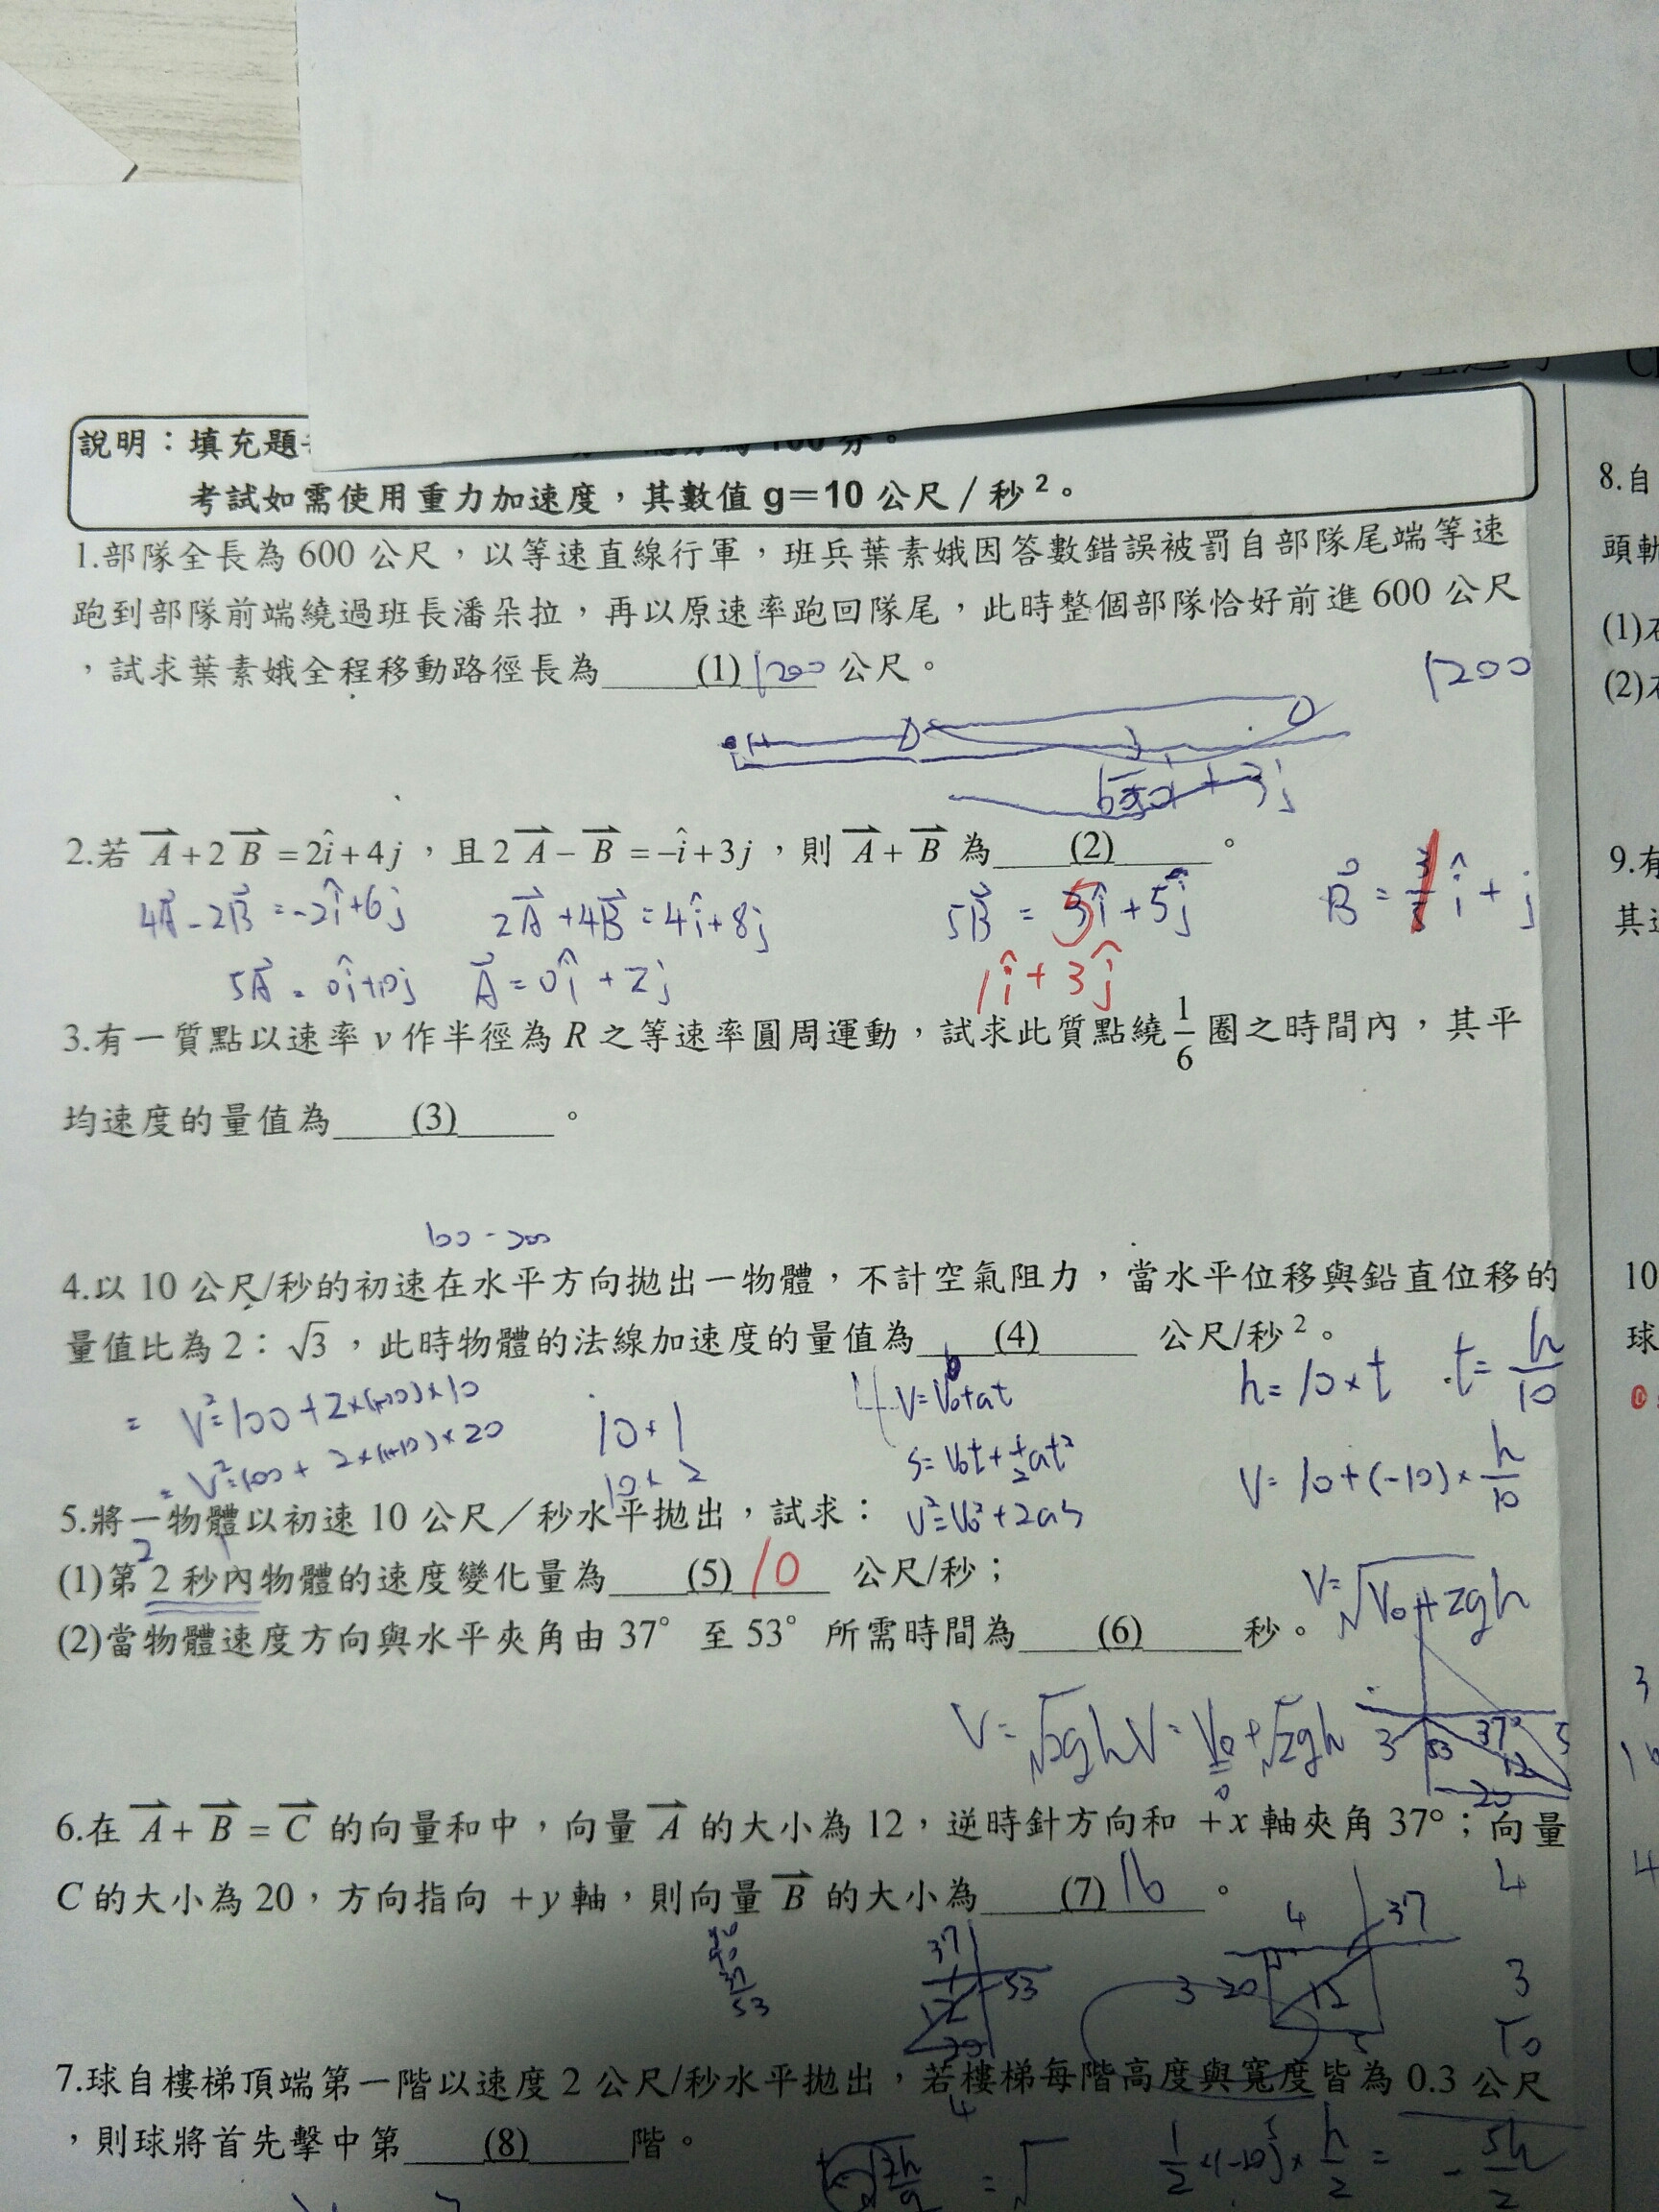 說明：填充題
100 分。
考試如需使用重力加速度，其數值 g＝10 公尺／秒²。
1.部隊全長為 600 公尺，以等速直線行軍，班兵葉素娥因答數錯誤被罰自部隊尾端等速
跑到部隊前端繞過班長潘朵拉，再以原速率跑回隊尾，此時整個部隊恰好前進 600 公尺
，試求葉素娥全程移動路徑長為 (1) 1200 公尺。
1200
2.若 A+2B=2i+4j，且 2A−B=−i+3j，則 A+B 為 (2) 。
4A-2B=-2i+6j 2A+4B=4i+8j 5B = 5i+5j B = i+j
5A = 0i+10j A=0i+2j 1i+3j
3.有一質點以速率 v 作半徑為 R 之等速率圓周運動，試求此質點繞 1/6 圈之時間內，其平
均速度的量值為 (3) 。
4.以 10 公尺/秒的初速在水平方向拋出一物體，不計空氣阻力，當水平位移與鉛直位移的
量值比為 2：√3，此時物體的法線加速度的量值為 (4) 公尺/秒²。
h=10×t t=h/10
V=V₀+at
S=V₀t+½at²
V=10+(-10)×h/10
10×1
10×2
5.將一物體以初速 10 公尺／秒水平拋出，試求：
V²=V₀²+2aS
(1)第 2 秒內物體的速度變化量為 (5) 10 公尺/秒；
V=√V₀+2gh
(2)當物體速度方向與水平夾角由 37° 至 53° 所需時間為 (6) 秒。
V=√2gh V=V₀+√2gh
3 53 37° 12 5
20
6.在 A+B=C 的向量和中，向量 A 的大小為 12，逆時針方向和 +x 軸夾角 37°；向量
C 的大小為 20，方向指向 +y 軸，則向量 B 的大小為 (7) 16 。
4 37 4
37 53 3 20 15 3
53
7.球自樓梯頂端第一階以速度 2 公尺/秒水平拋出，若樓梯每階高度與寬度皆為 0.3 公尺
，則球將首先擊中第 (8) 階。
8.自
頭軌
(1)
(2)
9.有
其
10
球